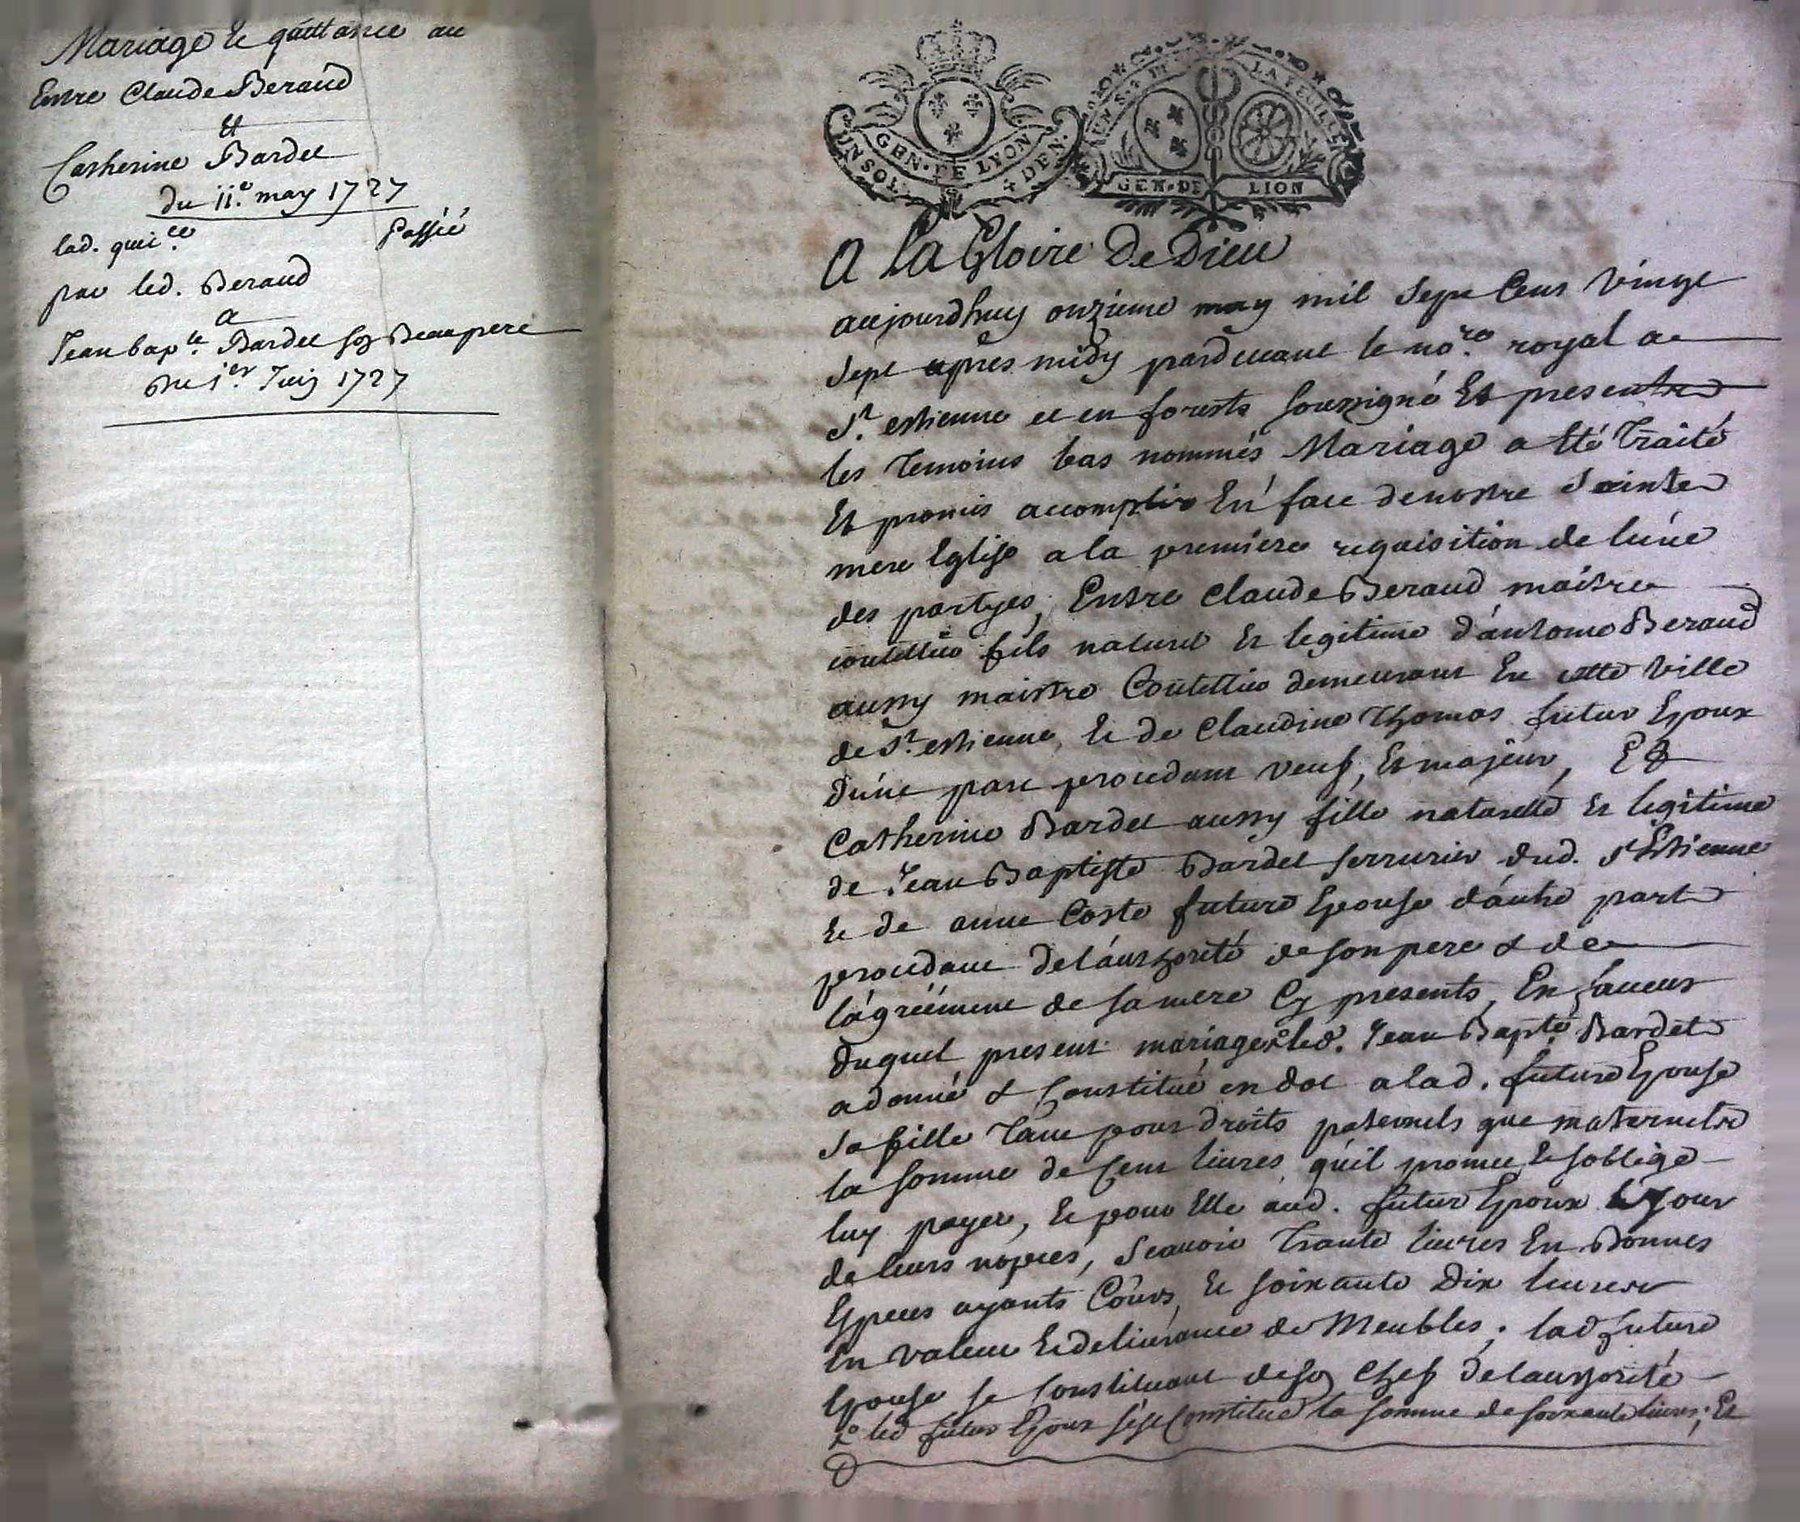 Mariage & quittance au
Entre Claude Beraud
&
Catherine Bardet
du 11.e may 1727
lad. quitce Passée
par led. Beraud
a
Jean bapte. Bardet son Beaupere
Du 1er Juin 1727
UN SOL GEN. DE LYON 4 DEN.
LA FEUILLE GEN. DE LION
A La Gloire De Dieu
aujourdhuy onzieme may mil sept Cens vingt
sept apres midy pardevant le nore. royal a
St. estienne et en forests soussigné Et presents
les temoins bas nommés Mariage a Eté Traité
Et promis accomplir En face de nostre Sainte
mere Eglise a la premiere requisition de l'une
des partyes, Entre Claude Beraud maitre
coutellier fils naturel Et legitime d'antoine Beraud
aussy maistre Coutellier demeurant En cette ville
de St. estienne, & de Claudine Thomas futur Epoux
d'une part procedant veuf, Et majeur, Et
Catherine Bardet aussy fille naturelle Et legitime
de Jean Baptiste Bardet serrurier dud. St Estienne
& de anne Coste future Epouse d'autre part
procedant de l'authorité de son pere & de
l'agréement de sa mere Cy presents, En faveur
duquel present mariage led. Jean Bapte. Bardet
a donné & Constitué en dot a lad. future Epouse
sa fille tant pour droits paternels que maternels
la somme de Cent livres qu'il promet & soblige
luy payer, & pour Elle aud. futur Epoux le jour
de leurs nopces, Scavoir Trante livres En Bonnes
Especes ayants Cours, & soixante Dix livres
En valeur & delivrance de Meubles; lad. future
Epouse se Constituant de son Chef de l'authorité
led futur Epoux se Constitue la somme de soixante livres; Et